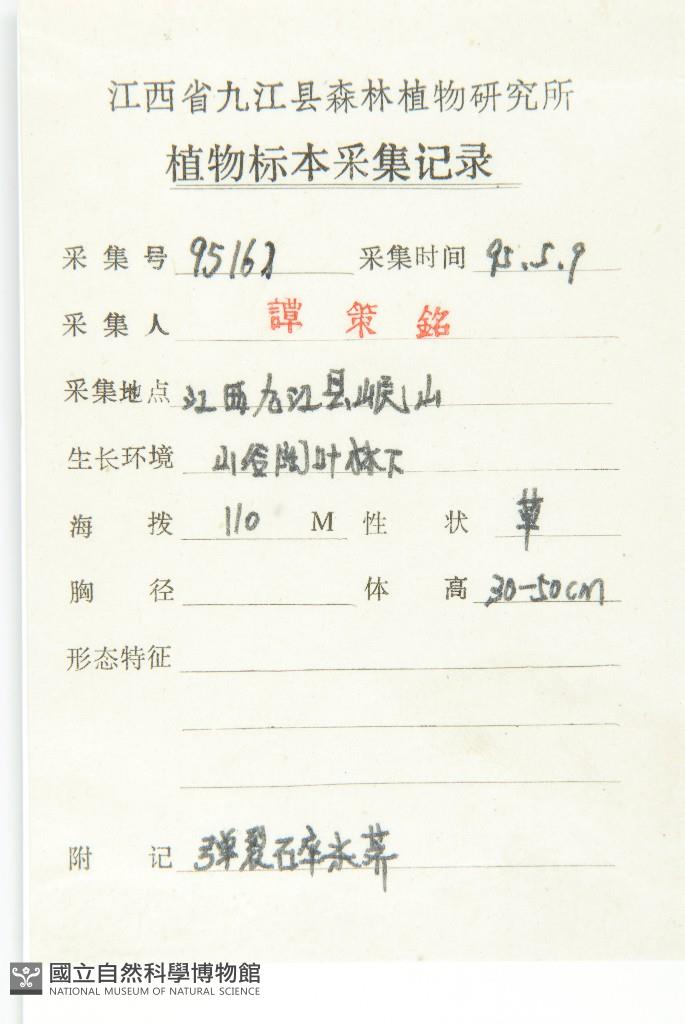 江西省九江县森林植物研究所
植物标本采集记录
采集号 95162 采集时间 95.5.9
采集人 譚策銘
采集地点 江西九江县岷山
生长环境 山谷阔叶林下
海拨 110 M 性状 草
胸径 体高 30-50cm
形态特征
附记 弹裂碎米荠
國立自然科學博物館
NATIONAL MUSEUM OF NATURAL SCIENCE